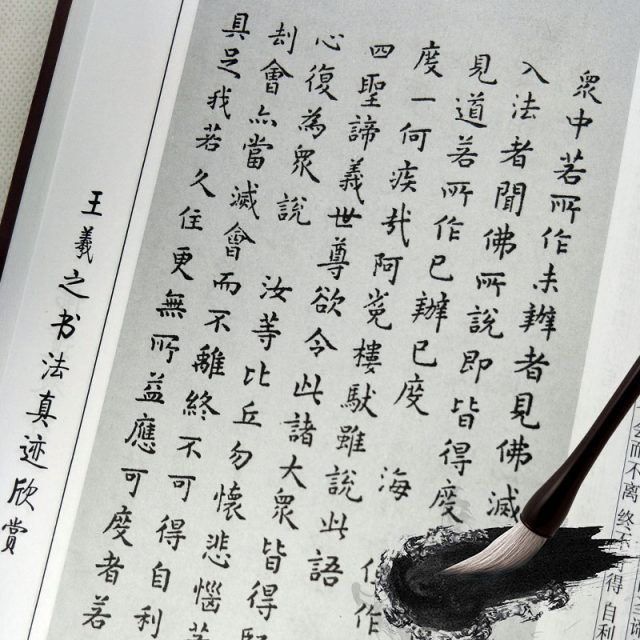 衆中若所作未辦者見佛滅
入法者聞佛所說即皆得度
見道若所作已辦已度 海
度一何疾哉阿㝹樓馱雖說此語 作
四聖諦義世尊欲令此諸大衆皆得
心復為衆說 汝等比丘勿懷悲惱
刦會亦當滅會而不離終不可得自利
具足我若久住更無所益應可度者若
王羲之书法真迹欣赏
而不离 终
得自利